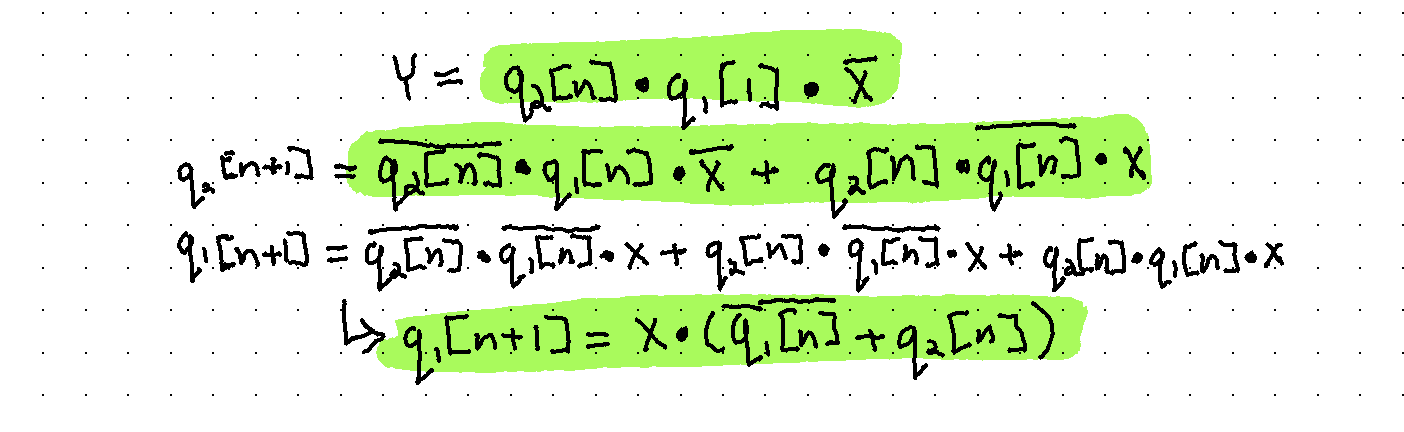 Y = q₂[n] • q₁[1] • X̅
q₂[n+1] = q̅₂̅[̅n̅]̅ • q₁[n] • X̅ + q₂[n] • q̅₁̅[̅n̅]̅ • X
q₁[n+1] = q̅₂̅[̅n̅]̅ • q̅₁̅[̅n̅]̅ • X + q₂[n] • q̅₁̅[̅n̅]̅ • X + q₂[n] • q₁[n] • X
↳ q₁[n+1] = X • (q̅₁̅[̅n̅]̅ + q₂[n])